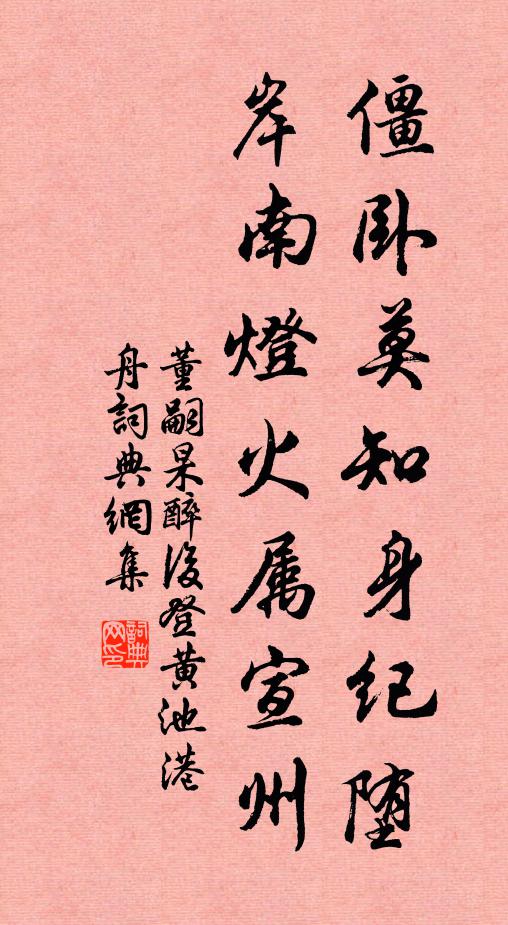 僵卧莫知身纪堕
岸南燈火属宣州
董嗣杲醉後登黄池港
舟詞典網集
詞典网印